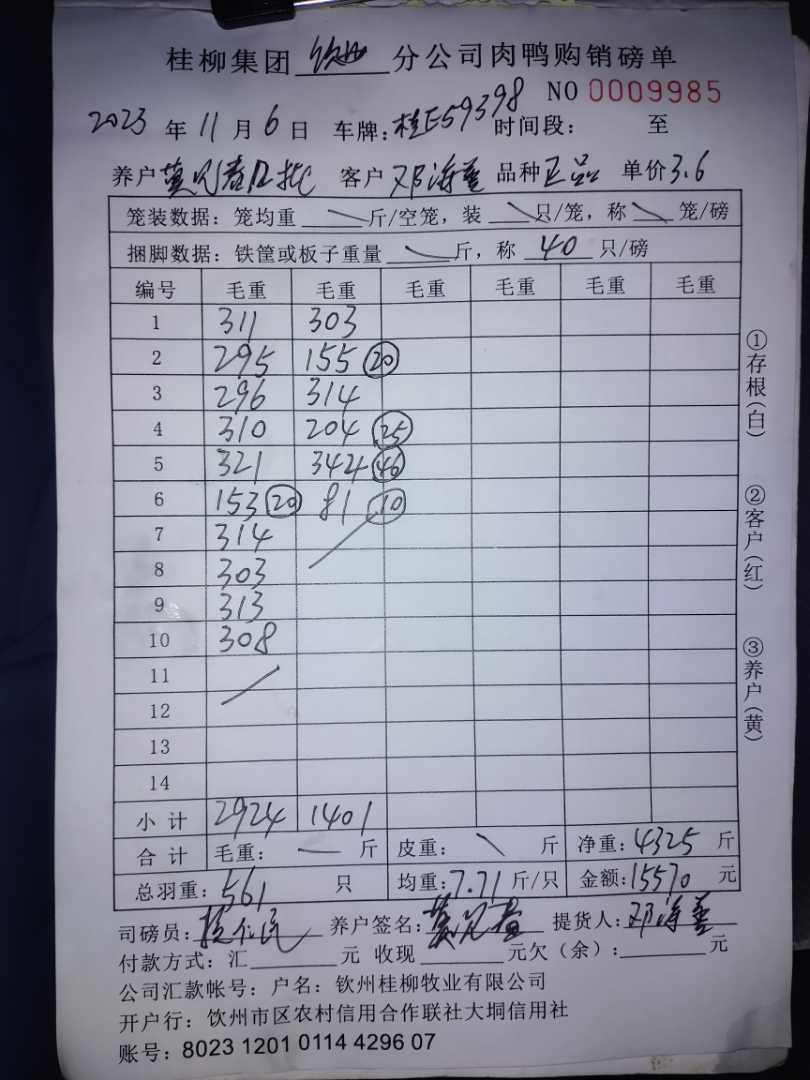 桂柳集团 钦州 分公司肉鸭购销磅单
NO 0009985
2023 年 11 月 6 日 车牌:桂E59398 时间段: 至
养户 客户 邓海 品种 正品 单价 3.6
笼装数据:笼均重 斤/空笼,装 只/笼,称 笼/磅
捆脚数据:铁筐或板子重量 斤,称 40 只/磅
编号 毛重 毛重 毛重 毛重 毛重 毛重
1 311 303
2 295 155 20
3 296 314
4 310 204 25
5 321 344 46
6 153 20 81 10
7 314
8 303
9 313
10 308
11
12
13
14
小计 2924 1401
合计 毛重: 斤 皮重: 斤 净重:4325 斤
总羽重:561 只 均重:7.71 斤/只 金额:15570 元
司磅员: 养户签名: 提货人:邓海
付款方式:汇 元 收现 元欠(余): 元
公司汇款帐号:户名:钦州桂柳牧业有限公司
开户行:钦州市区农村信用合作联社大垌信用社
账号:8023 1201 0114 4296 07
①存根(白)
②客户(红)
③养户(黄)